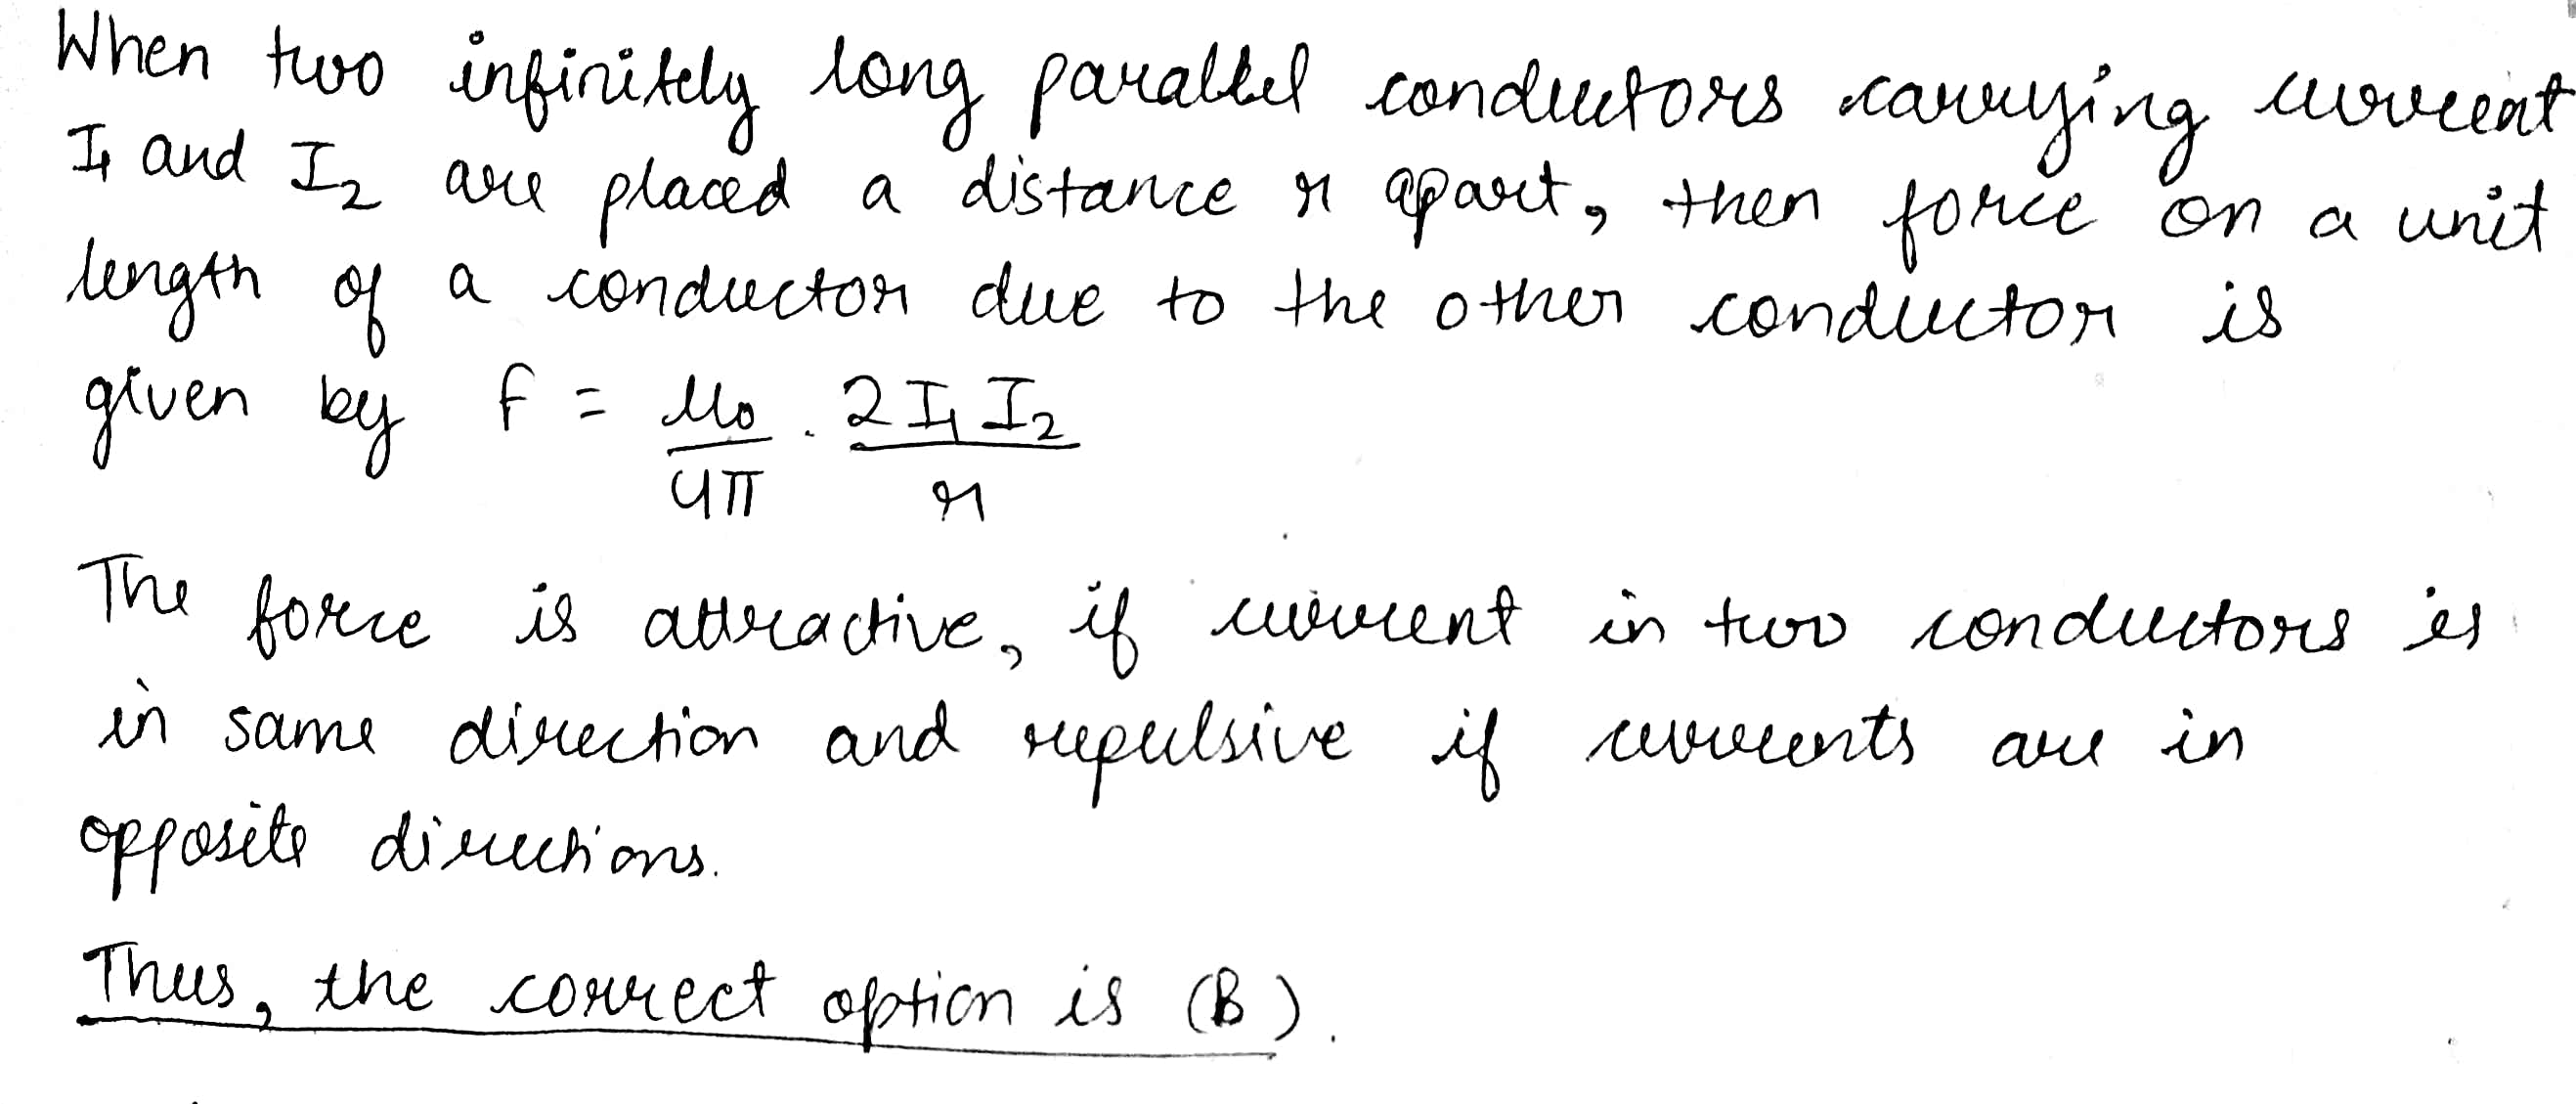 When two infinitely long parallel conductors carrying current
I1 and I2 are placed a distance r apart, then force on a unit
length of a conductor due to the other conductor is
given by F = μ0/4π . 2I1 I2/r
The force is attractive, if current in two conductors is
in same direction and repulsive if currents are in
opposite directions.
Thus, the correct option is (B).